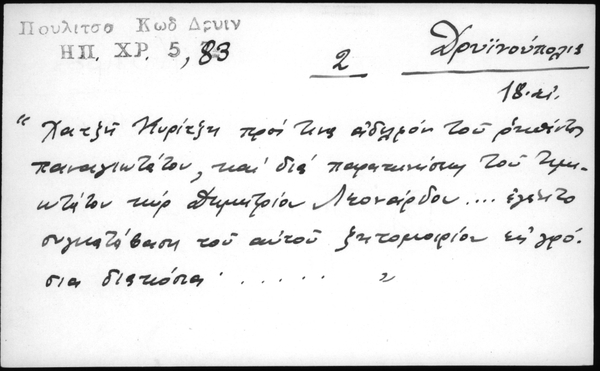 Πουλιτσα Κωδ Δρυιν
ΗΠ. ΧΡ. 5, 83
2
Δρυϊνούπολις
18. αἰ.
"Χατζῆ Κυρίτζη πρός τινα ἀδελφόν τοῦ ῥηθέντος
παναγιωτάτου, καί διά παρακινήσεως τοῦ τιμι-
ωτάτου κύρ Δημητρίου Λεονάρδου.... ἐγένετο
συγκατάβαση τοῦ αὐτοῦ ζητομοιρίου εἰς γρό-
σια διακόσια . . . . . . "